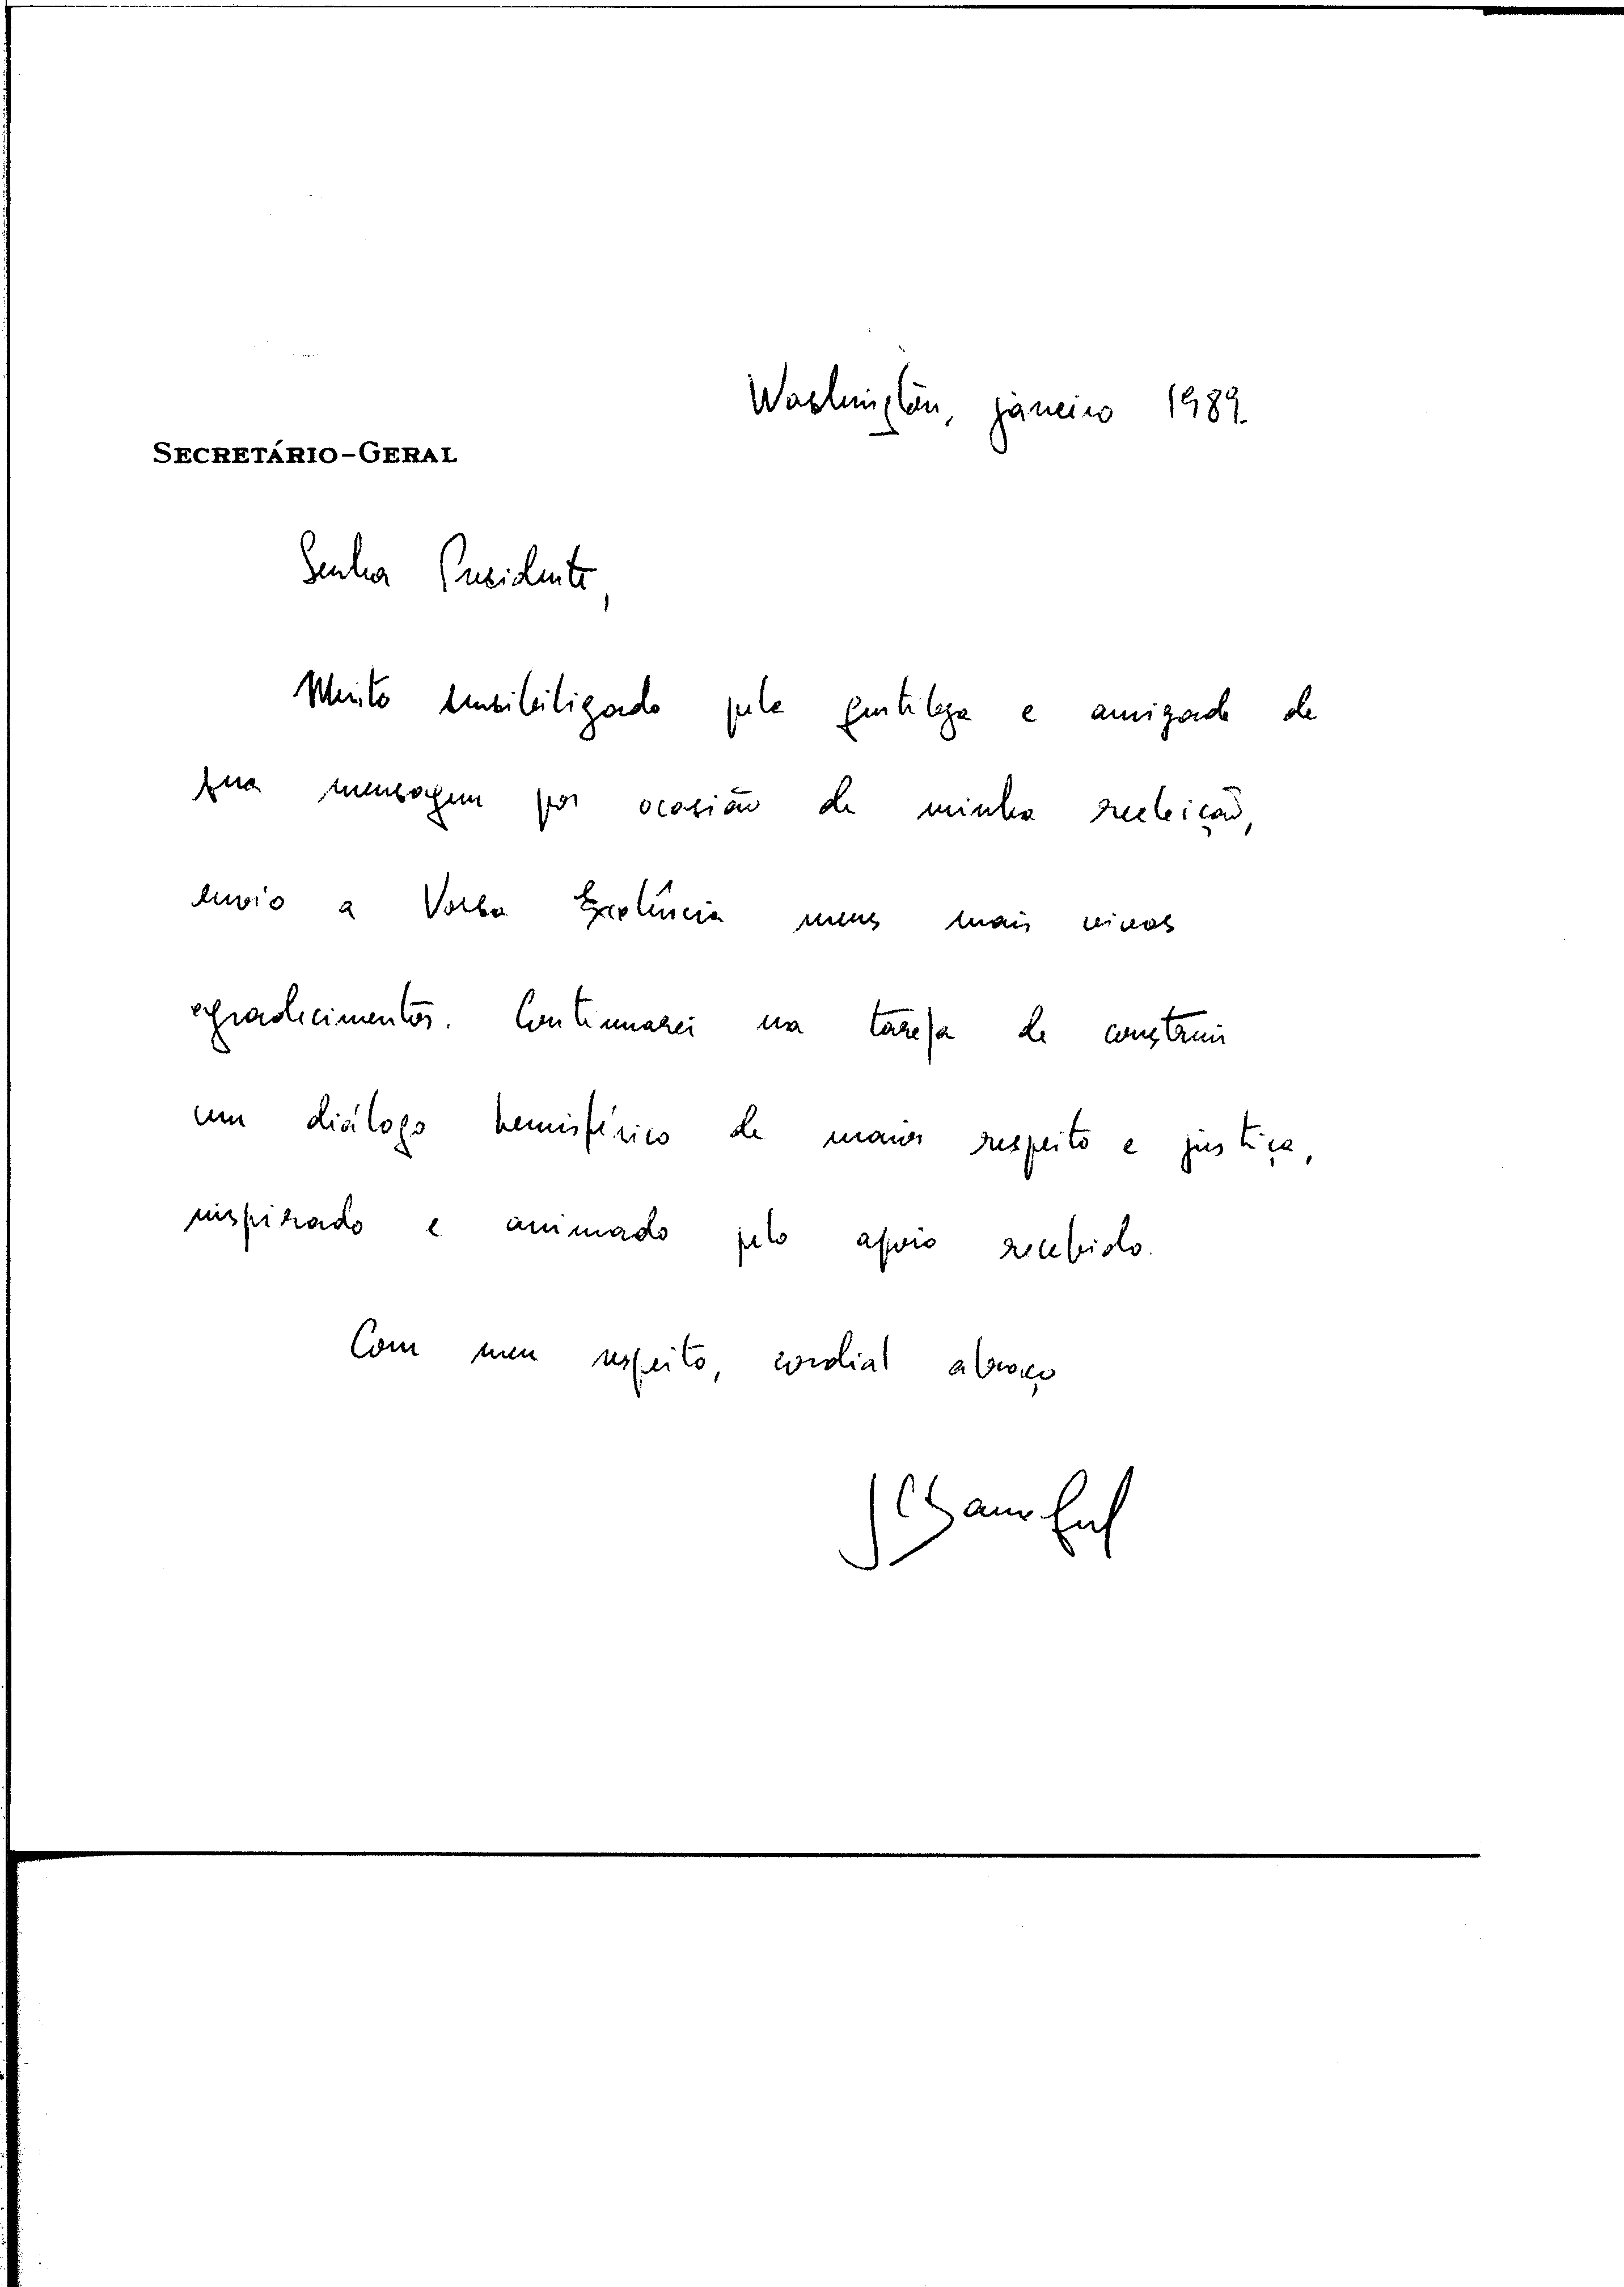 Washington, janeiro 1989.
SECRETÁRIO-GERAL
Senhor Presidente,
Muito sensibilizado pela gentileza e amizade de
sua mensagem por ocasião de minha reeleição,
envio a Vossa Excelência meus mais vivos
agradecimentos. Continuarei na tarefa de construir
um diálogo hemisférico de maior respeito e justiça,
inspirado e animado pelo apoio recebido.
Com meu respeito, cordial abraço